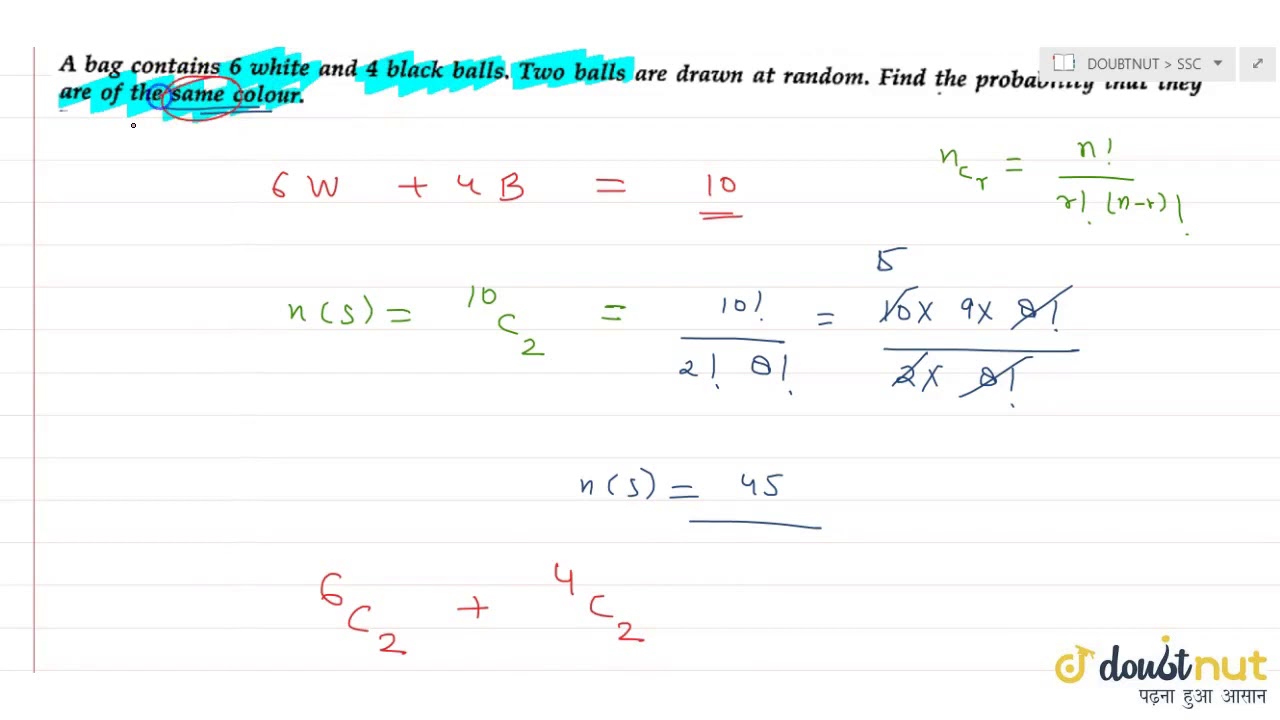 A bag contains 6 white and 4 black balls. Two balls are drawn at random. Find the probability that they
are of the same colour.
DOUBTNUT > SSC
6 W + 4 B = 10
nCr = n! / r! (n-r)!
n(s) = 10C2 = 10! / 2! 8! = 10x 9x 8! / 2x 8!
5
n(s) = 45
6C2 + 4C2
doubtnut
पढ़ना हुआ आसान